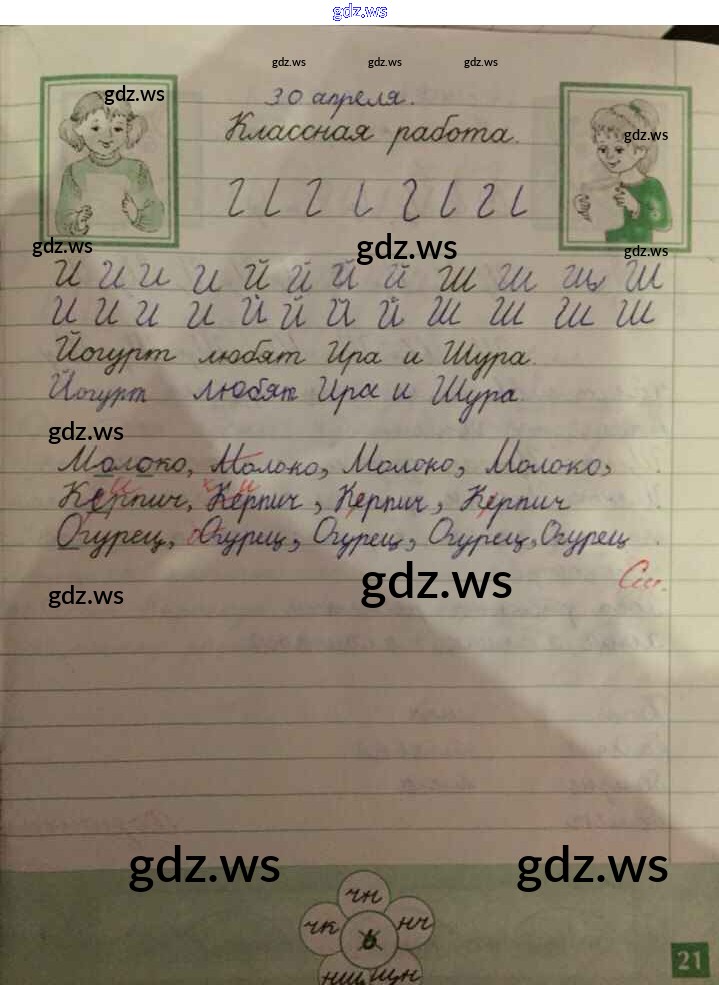 gdz.ws
gdz.ws gdz.ws gdz.ws
gdz.ws
30 апреля.
gdz.ws
Классная работа.
gdz.ws
gdz.ws
gdz.ws
И И И И Й Й Й Й Ш Ш Ш Ш
И И И И Й Й Й Й Ш Ш Ш Ш
Йогурт любят Ира и Шура.
Йогурт любят Ира и Шура.
gdz.ws
Молоко, Молоко, Молоко, Молоко,
и и
Керпич, Керпич, Керпич, Керпич
Огурец, Огурец, Огурец, Огурец, Огурец
gdz.ws
gdz.ws
См.
gdz.ws
gdz.ws
чн
чк нч
нщ щн
21